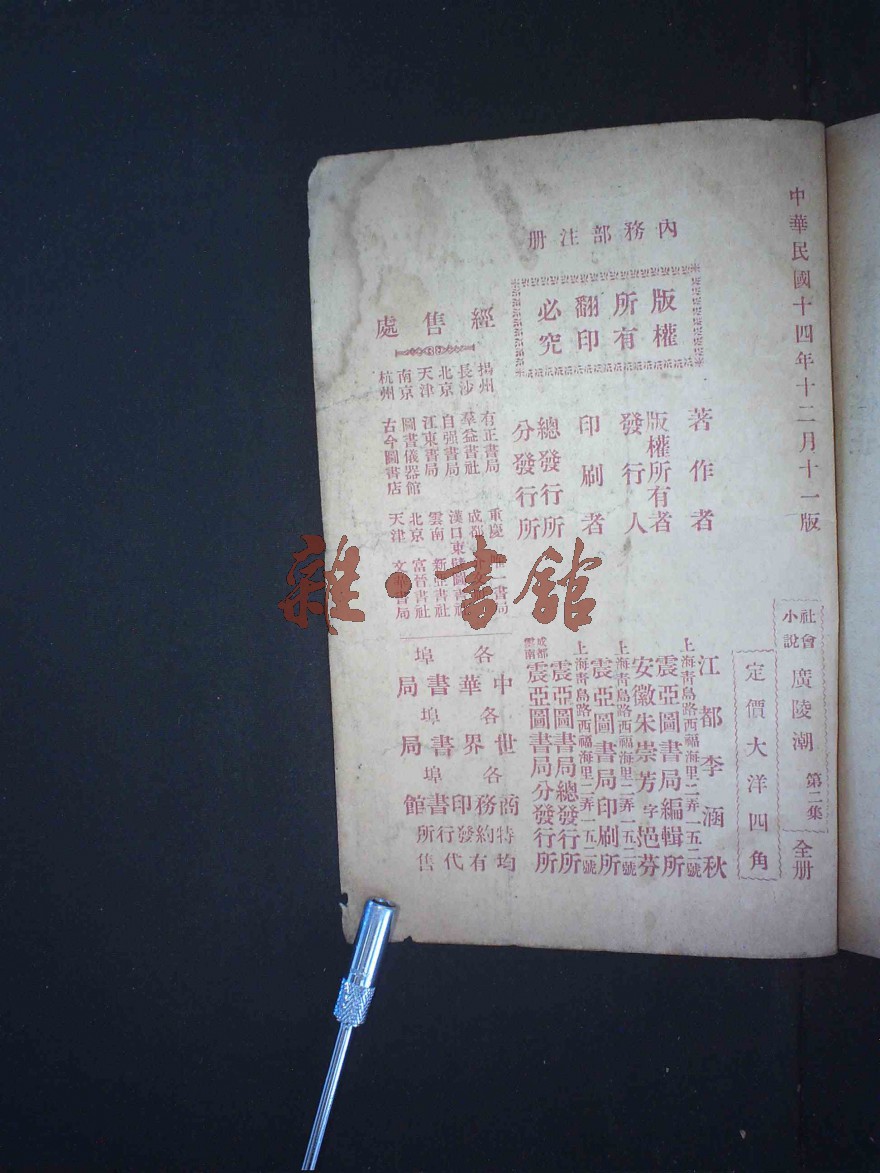 中華民國十四年十二月十一版
社會小說 廣陵潮 第二集 全册
定價大洋四角
內務部注册
版權所有翻印必究
著作者 江都李涵秋
版權所有者 上海靑島路西福海里二弄一五二號 震亞圖書局編輯所
發行人 安徽朱崇芳字挹芬
印刷者 上海靑島路西福海里二弄一五二號 震亞圖書局印刷所
總發行所 上海靑島路西福海里二弄一五二號 震亞圖書局總發行所
分發行所 成都 雲南 震亞圖書局分發行所
經售處
揚州 有正書局
長沙 羣益書社
北京 自强書局
天津 江東書局
南京 圖書儀器館
杭州 古今圖書店
重慶 書局
成都
漢口東 圖書
雲南 新亞書社
北京 富晉書社
天津 文 書局
各埠中華書局
各埠世界書局
各埠商務印書館
特約發行所
均有代售
雜·書館